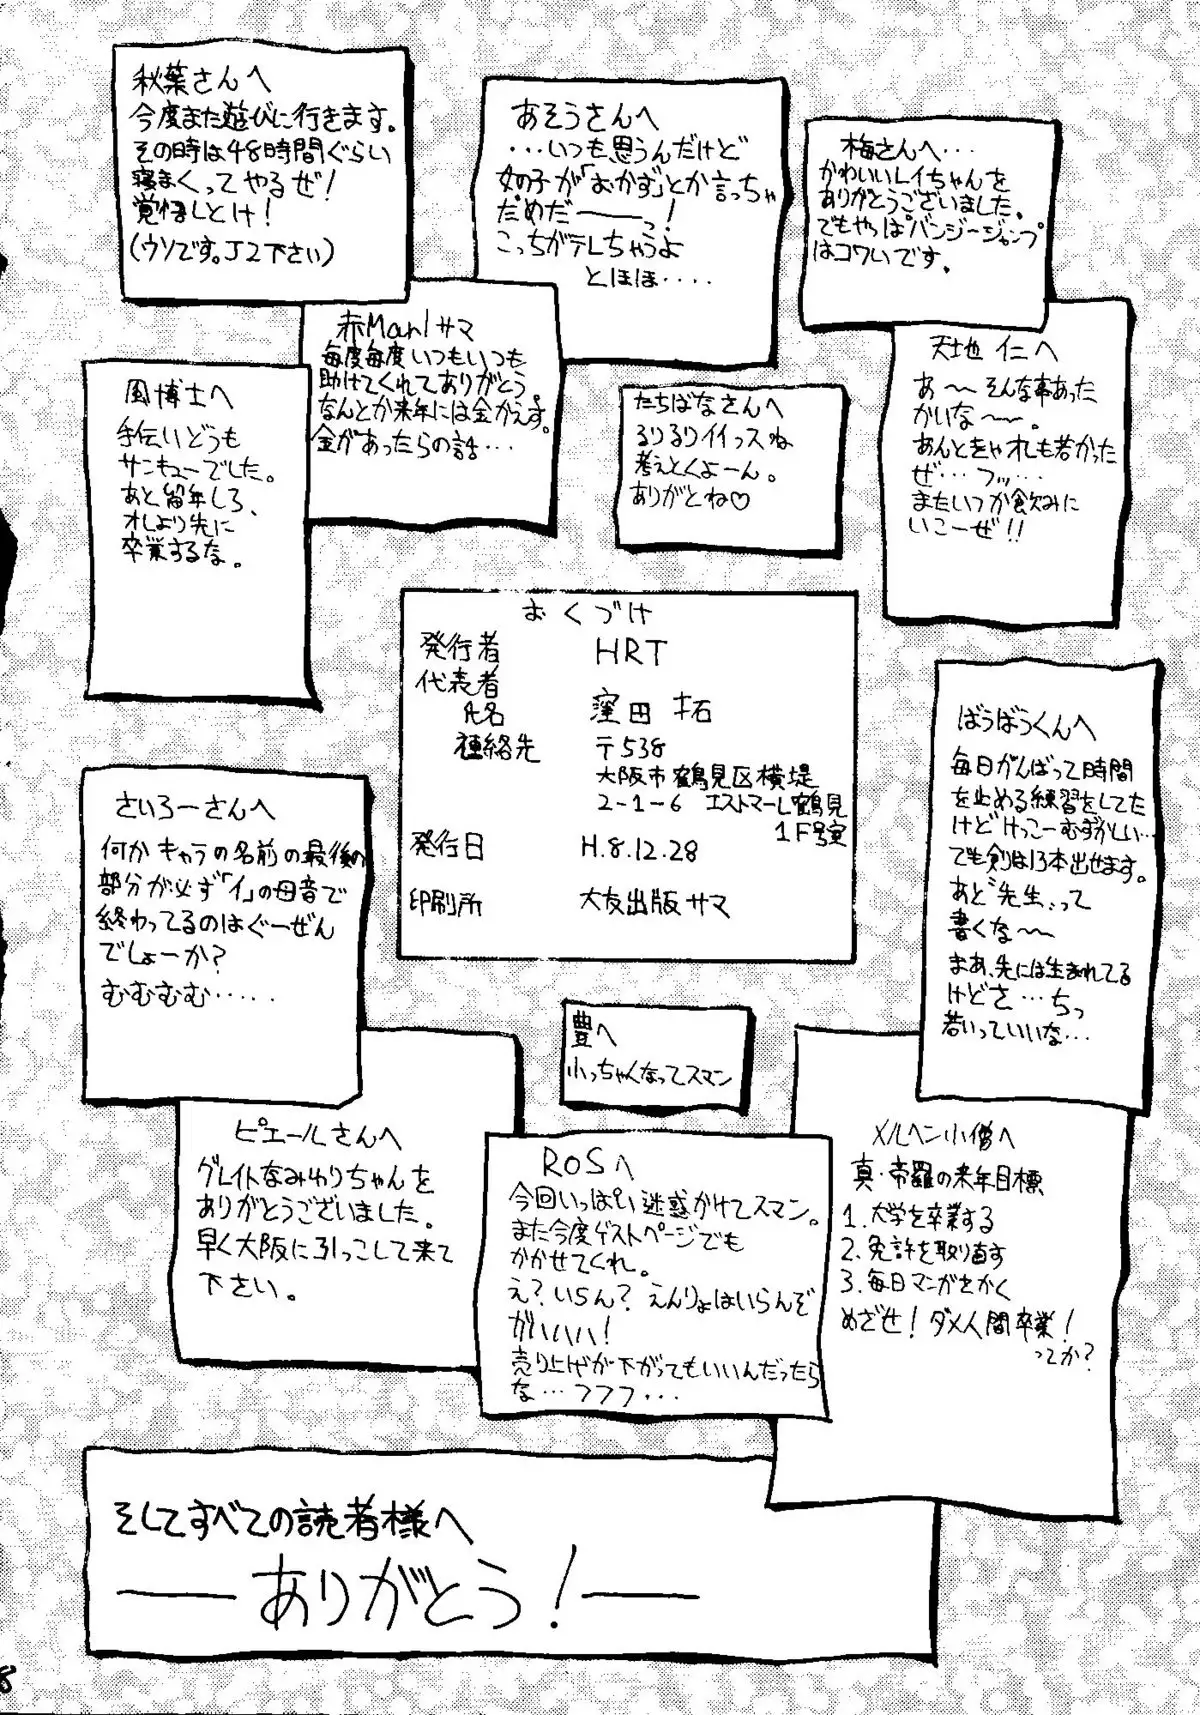 秋葉さんへ
今度また遊びに行きます。
その時は48時間ぐらい
寝まくってやるぜ!
覚悟しとけ!
(ウソです。J2下さい)
あそうさんへ
・・・いつも思うんだけど
女の子が「おかず」とか言っちゃ
だめだーーっ!
こっちがテレちゃうよ
とほほ・・・・
梅さんへ・・・
かわいいレイちゃんを
ありがとうございました。
でもやっぱバンジージャンプ
はコワいです。
赤Man1サマ
毎度毎度いつもいつも
助けてくれてありがとう。
なんとか来年には金かえす。
金があったらの話・・・
天地 仁へ
あ〜〜そんな事あった
かいな〜〜。
あんときゃオレも若かった
ぜ・・・フッ・・・
またいつか飲みに
いこーぜ!!
風博士へ
手伝いどうも
サンキューでした。
あと留年しろ、
オレより先に
卒業するな。
たちばなさんへ
るりるりイイっスね
考えとくよーん。
ありがとね♡
おくづけ
発行者 HRT
代表者
氏名 窪田 拓
連絡先 〒538
大阪市鶴見区横堤
2-1-6 エストマーレ鶴見
1F号室
発行日 H.8.12.28
印刷所 大友出版サマ
ばうばうくんへ
毎日がんばって時間
を止める練習をしてた
けどけっこーむずかしい…
でも剣は13本出せます。
あと〝先生〟って
書くな〜〜
まあ、先には生まれてる
けどさ…ちっ
若いっていいな…
さいろーさんへ
何かキャラの名前の最後の
部分が必ず「イ」の母音で
終わってるのはぐーぜん
でしょーか?
むむむむ・・・・・
豊へ
小っちゃくなってスマン
ピエールさんへ
グレイトなみゆりちゃんを
ありがとうございました。
早く大阪に引っこして来て
下さい。
ROSへ
今回いっぱい迷惑かけてスマン。
また今度ゲストページでも
かかせてくれ。
え?いらん?えんりょはいらんぞ
ガハハハ!
売り上げが下がってもいいんだったら
な…フフフ…
メルヘン小僧へ
真・帝羅の来年目標
1.大学を卒業する
2.免許を取り直す
3.毎日マンガをかく
めざせ!ダメ人間卒業!
ってか?
そしてすべての読者様へ
――ありがとう!――
8